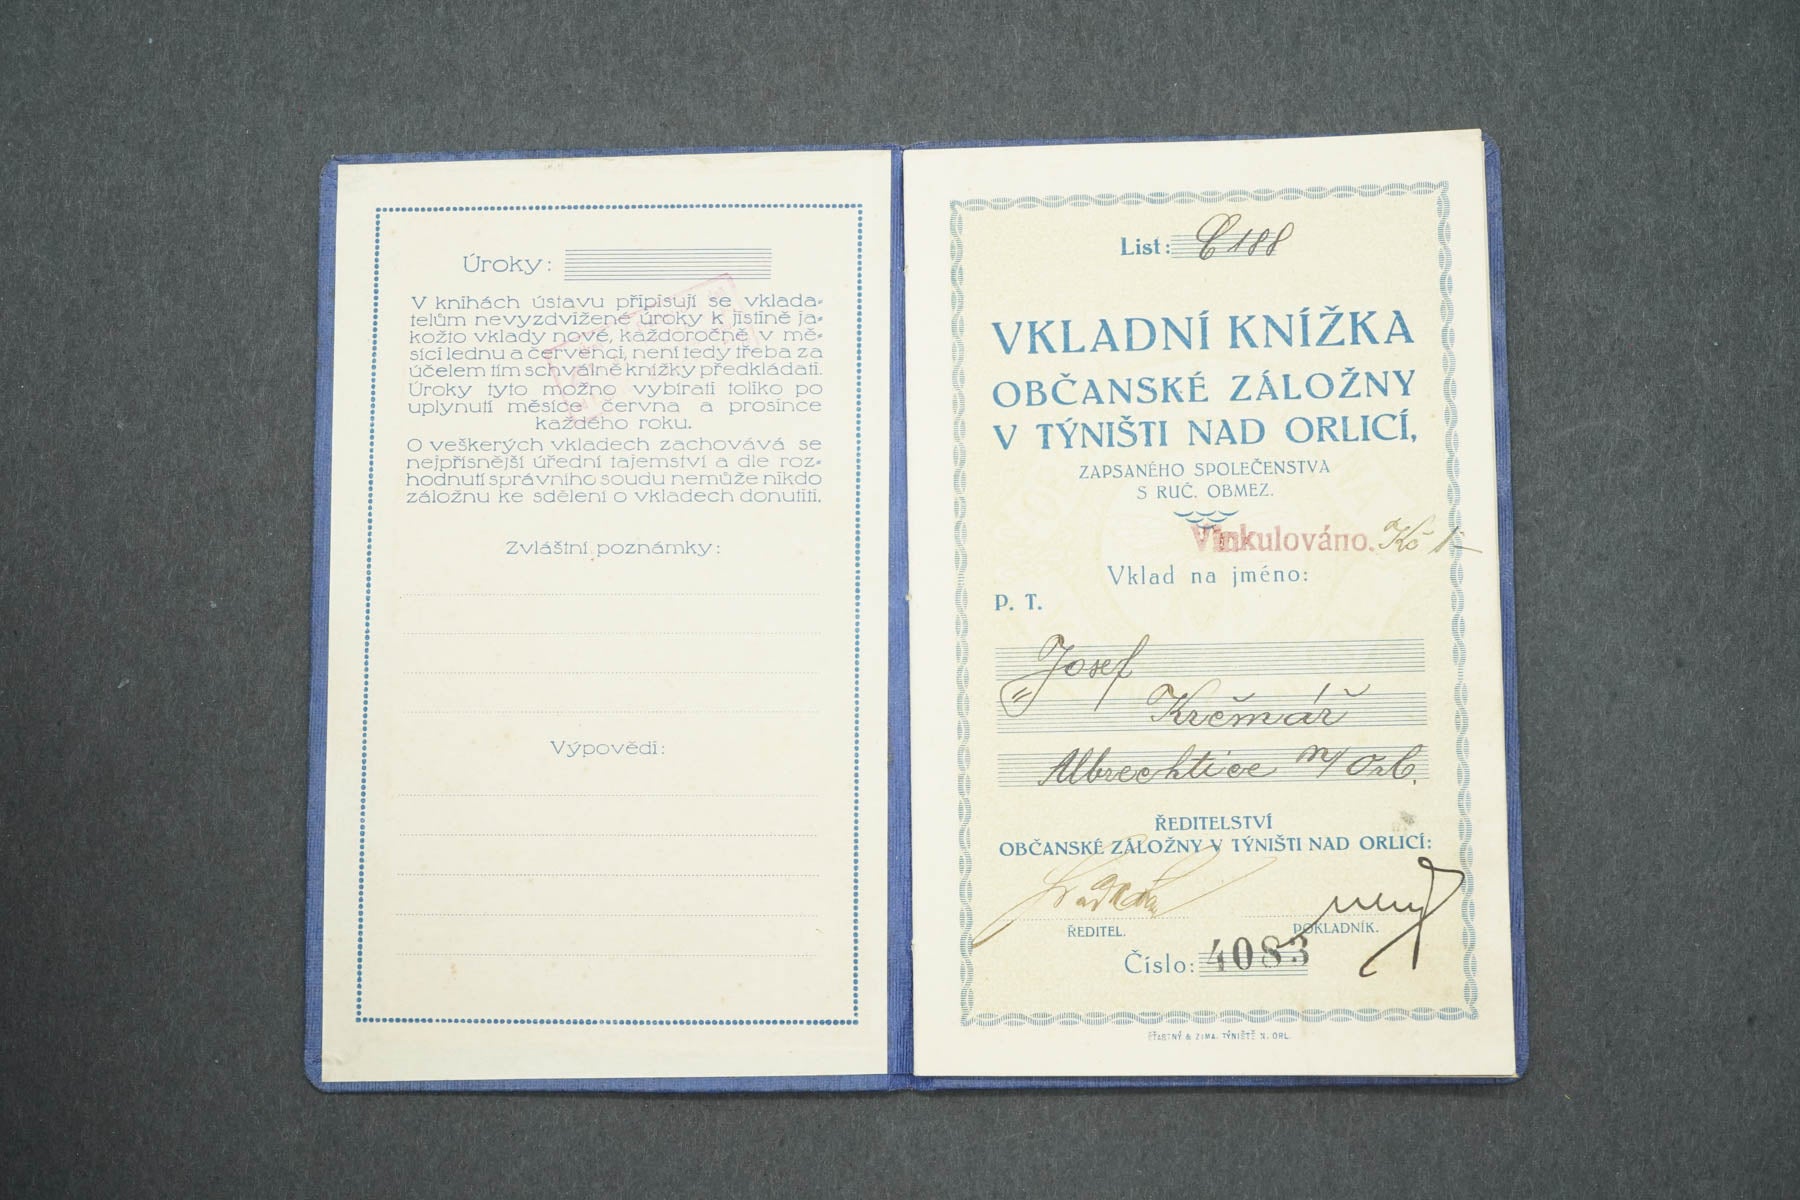 Úroky:
V knihách ústavu připisují se vklada-
telům nevyzdvižené úroky k jistině ja-
kožto vklady nové, každoročně v mě-
síci lednu a červenci, není tedy třeba za
účelem tím schválně knížky předkládati.
Úroky tyto možno vybírati toliko po
uplynutí měsíce června a prosince
každého roku.
O veškerých vkladech zachovává se
nejpřísnější úřední tajemství a dle roz-
hodnutí správního soudu nemůže nikdo
záložnu ke sdělení o vkladech donutiti.
Zvláštní poznámky:
Výpovědi:
List: C 188
VKLADNÍ KNÍŽKA
OBČANSKÉ ZÁLOŽNY
V TÝNIŠTI NAD ORLICÍ,
ZAPSANÉHO SPOLEČENSTVA
S RUČ. OBMEZ.
Vinkulováno. Kč 1-
Vklad na jméno:
P. T.
Josef
Krčmář
Albrechtice n/Orl.
ŘEDITELSTVÍ
OBČANSKÉ ZÁLOŽNY V TÝNIŠTI NAD ORLICÍ:
ŘEDITEL. POKLADNÍK.
Číslo: 4083
ŠŤASTNÝ & ZIMA, TÝNIŠTĚ N. ORL.